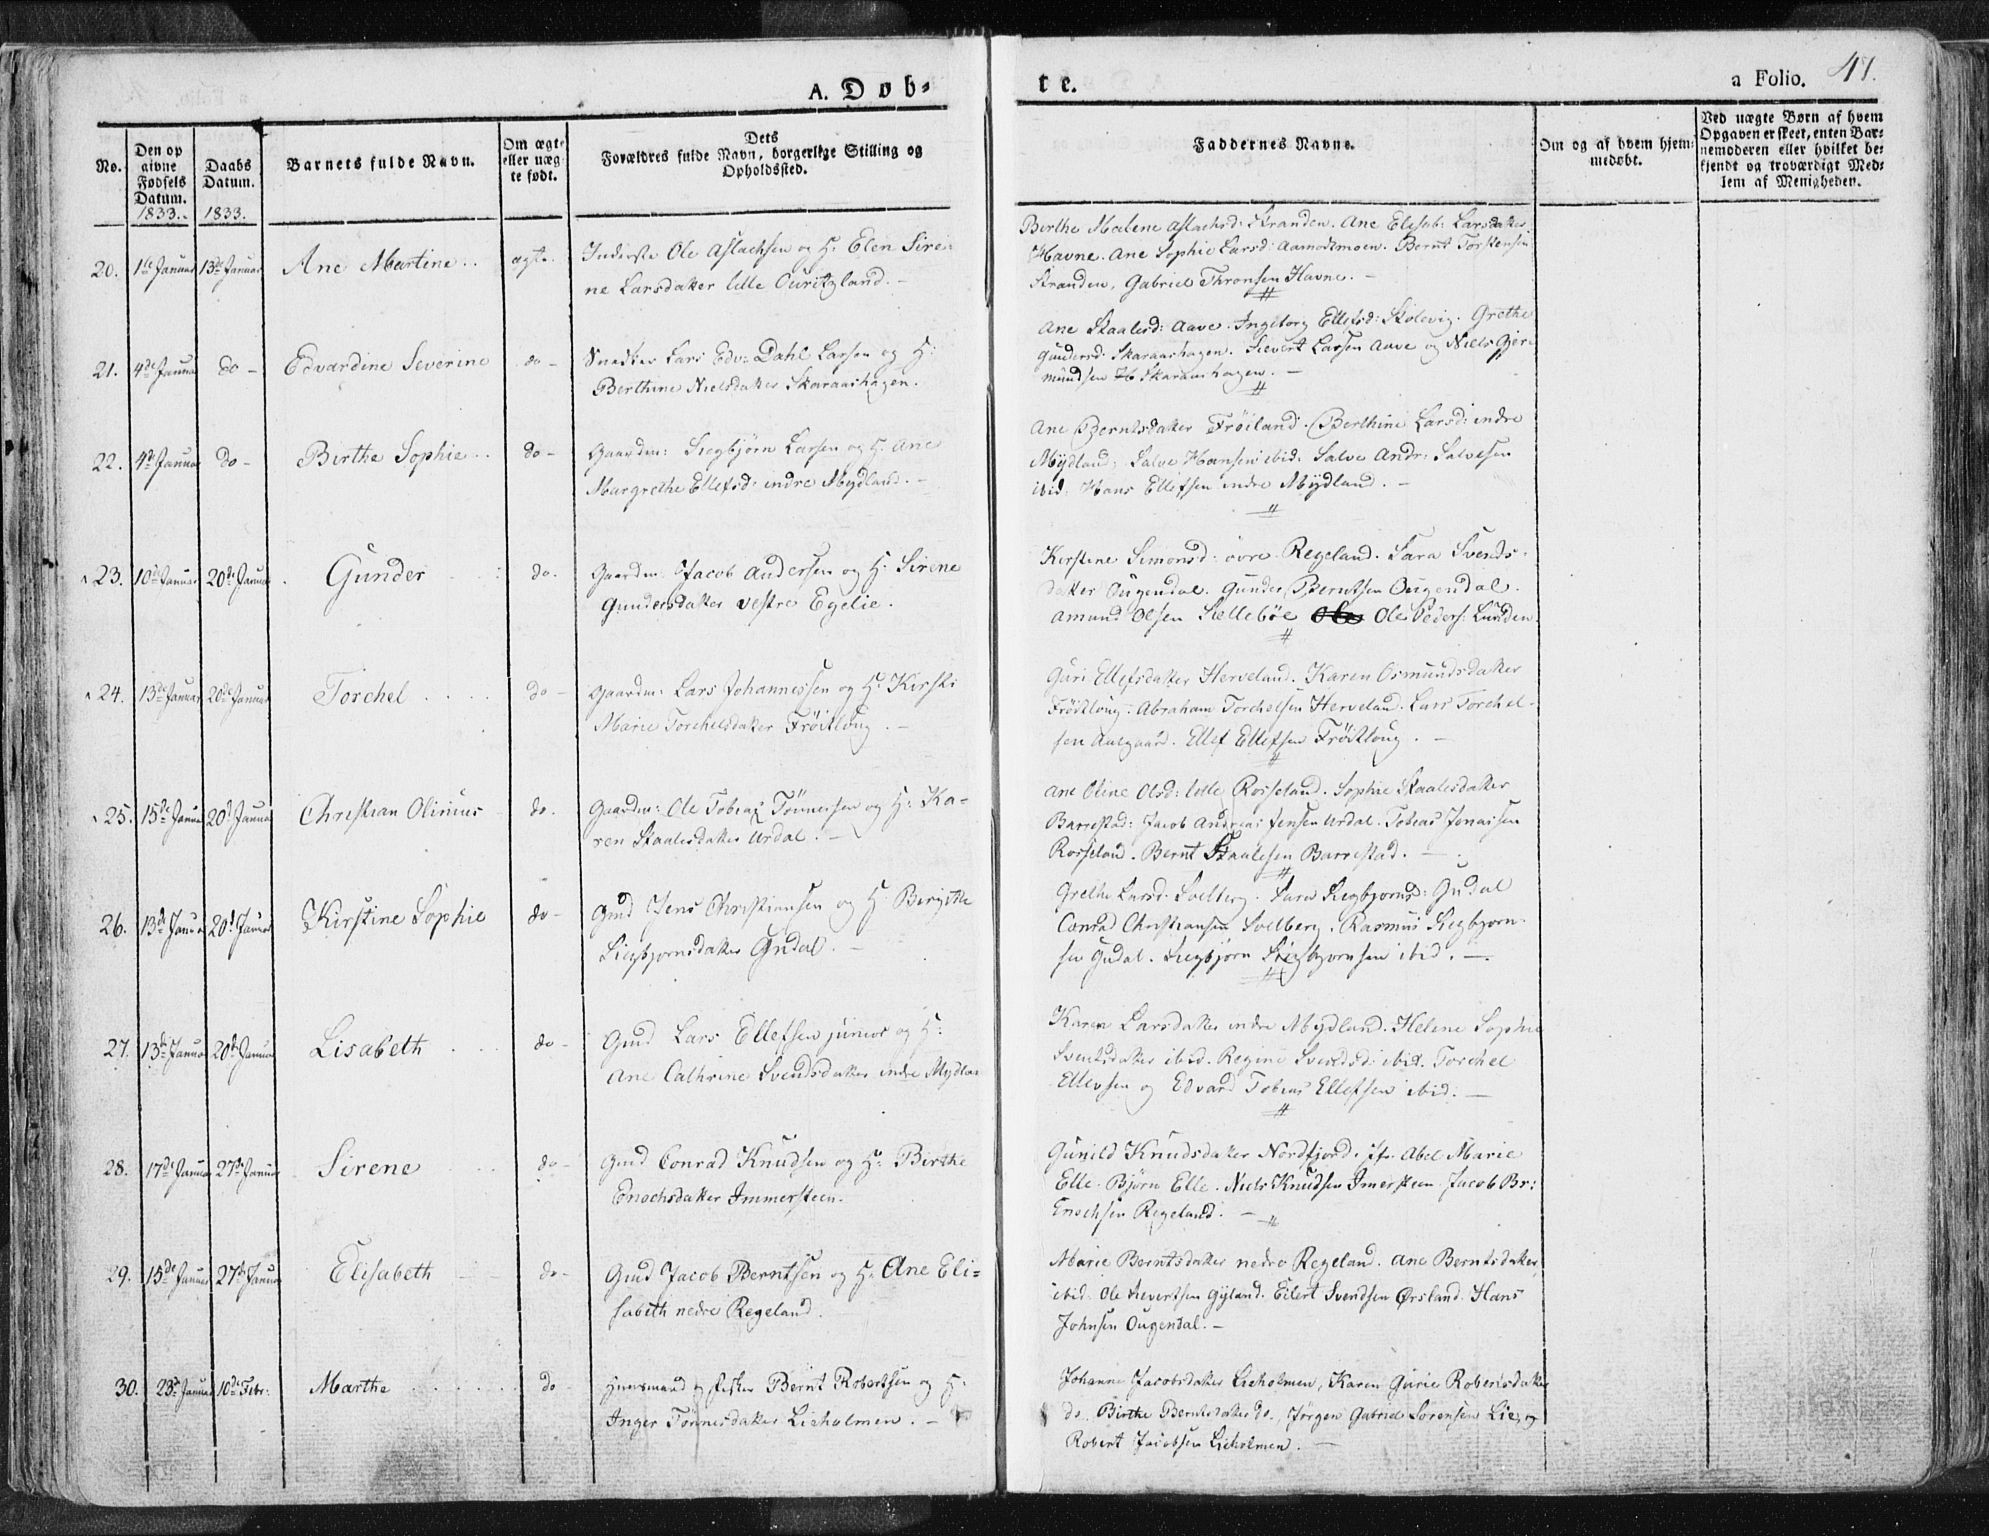 A. Døb-
te.
a Folio. 41.
No.
Den opgivne Fødsels Datum. 1833.
Daabs Datum. 1833.
Barnets fulde Navn.
Om ægte eller uægte født.
Dets Forældres fulde Navn, borgerlige Stilling og Opholdssted.
Faddernes Navne.
Om og af hvem hjemmedøbt.
Ved uægte Børn af hvem Opgaven er skeet, enten Barnemoderen eller hvilket bekjendt og troværdigt Medlem af Menigheden.
20. 1ste Januar 13de Januar Ane Martine . . ægte. Inderste Ole Aslachsen og H: Elen Siri-
ne Larsdatter lille Ouritzland. -
Birthe Malene Aslachsd: Stranden. Ane Elisab: Larsdatter
Havne. Ane Sophie Larsd: Aamodtmoen. Bernt Torstensen
Stranden, Gabriel Thronsen Havne. -
21. 4de Januar do - Edvardine Severine do - Snedker Lars Edv: Dahl Larsen og H:
Berthine Nielsdatter Skaraashagen.
Ane Staalesd: Aave. Ingeborg Ellefsd: Stolevig. Grethe
Gundersd: Skaraashagen. Sievert Larsen Aave og Niels Gjer-
mundsen Skaraashagen. -
22. 4de Januar do - Birthe Sophie . . do - Gaardm: Siegbjørn Larsen og H: Ane
Margrethe Ellefsd: indre Mydland. -
Ane Berntsdatter Frøiland. Berthine Larsd: indre
Mÿdland. Salve Hansen ibid: Salve Andr: Salvesen
ibid. Hans Ellefsen indre Mÿdland. -
23. 10de Januar 20de Januar Gunder do. Gaardm: Jacob Andersen og H: Sirene
Gundersdatter vestre Egelie.
Kirstine Simonsd: øvre Regeland. Sara Svends-
datter Ougendal. Gunder Berntsen Ougendal.
Amund Olsen Sellebøe Ole Peders: Lunden.
24. 13de Januar 20de Januar Torchel . . . . do - Gaardm: Lars Johannessen og H: Kirsti
Marie Torchelsdatter Frøitloug. -
Guri Ellefsdatter Herveland. Karen Osmundsdatter
Frøitloug. Abraham Torchelsen Herveland. Lars Torchel-
sen Aalgaard. Ellef Ellefsen Frøitloug. -
25. 15de Januar 20de Januar Christian Olinius do. Gaardm: Ole Tobias Tønnessen og H: Ka-
ren Staalesdatter Urdal. -
Ane Oline Olsd: lille Rosseland. Sophie Staalesdatter
Barrestad: Jacob Andreas Jensen Urdal. Tobias Jonassen
Rosseland. Bernt Staalesen Barrestad. -
26. 13de Januar 20de Januar Kirstine Sophie do - Gmd Jens Christiansen og H: Birgitte
Siegbjørnsdatter Gudal. -
Grethe Larsd. Solberg. Sara Siegbjørnsd: Gudal
Conrad Christiansen Solberg. Rasmus Siegbjørn-
sen Gudal. Siegbjørn Siegbjørnsen ibid. -
27. 13de Januar 20de Januar Lisabeth . . . do - Gmd Lars Ellefsen junior og H:
Ane Cathrine Svendsdatter indre Mydland
Karen Larsdatter indre Mydland. Helene Sophie
Svendsdatter ibid. Regine Svendsd: ibid. Torchel
Ellevsen og Edvard Tobias Ellefsen ibid. -
28. 17de Januar 27de Januar Sirene do - Gmd Conrad Knudsen og H: Birthe
Enochsdatter Immersteen.
Gunild Knudsdatter Nordfjord. Jfr. Abel Marie
Elle. Bjørn Elle. Niels Knudsen Imersteen. Jacob Br:
Enochsen Regeland. -
29. 15de Januar 27de Januar Elisabeth do - Gmd Jacob Berntsen og H: Ane Eli-
sabeth nedre Regeland.
Marie Berntsdatter nedre Regeland. Ane Berntsdatter
ibid. Ole Sievertsen Gyland. Eilert Svendsen Ørsland. Hans
Johnsen Ougendal. -
30. 23de Januar 10de Febr: Marthe . . . . . do Huusmand og Fisker Bernt Robertsen og H:
Inger Tønnesdatter Lieholmen. -
Johanne Jacobsdatter Lieholmen, Karen Gurie Robertsdatter
do. Birthe Berntsdatter do., Jørgen Gabriel Sørensen Lie, og
Robert Jacobsen Lieholmen. -